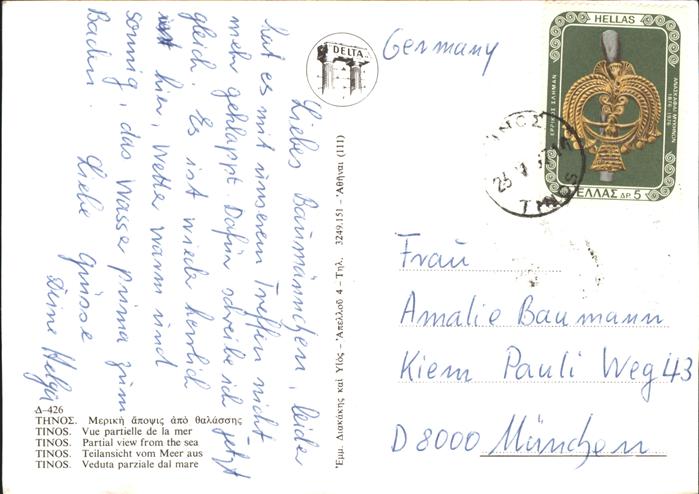 Liebes Baumännchen, leider
hat es mit unserem Treffen nicht
mehr geklappt. Dafür schreibe ich jetzt
gleich. Es ist wieder herrlich
hier, Wetter warm und
sonnig, das Wasser prima zum
Baden.
Liebe Grüsse
Deine Helga
DELTA
Germany
HELLAS
ΕΡΡΙΚΟΣ ΣΛΗΜΑΝ
ΑΝΑΣΚΑΦΑΙ ΜΥΚΗΝΩΝ
1876-1976
ΕΛΛΑΣ ΔΡ 5
Frau
Amalie Baumann
Kiem Pauli Weg 43
D 8000 München
Εμμ. Διακάκης καί Υἱός – Ἀπελλοῦ 4 – Τηλ. 3249.151 – Ἀθῆναι (111)
Δ-426
ΤΗΝΟΣ. Μερική ἄποψις ἀπό θαλάσσης
TINOS. Vue partielle de la mer
TINOS. Partial view from the sea
TINOS. Teilansicht vom Meer aus
TINOS. Veduta parziale dal mare